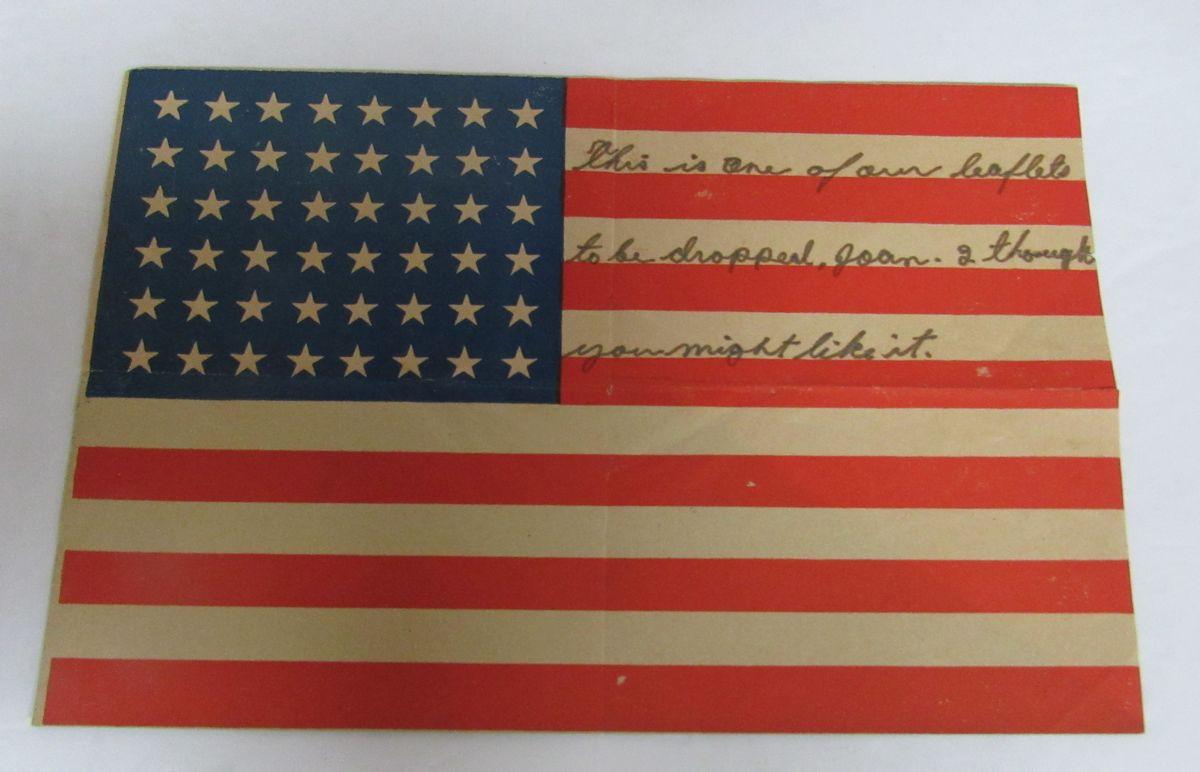 This is one of our leaflets
to be dropped, Joan. I though
you might like it.